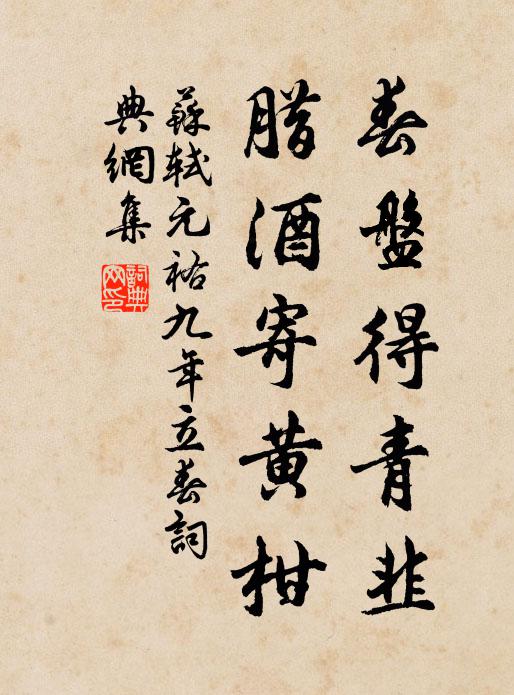 春盤得青韭
腊酒寄黄柑
蘇軾元祐九年立春詞
典網集
詞典網印